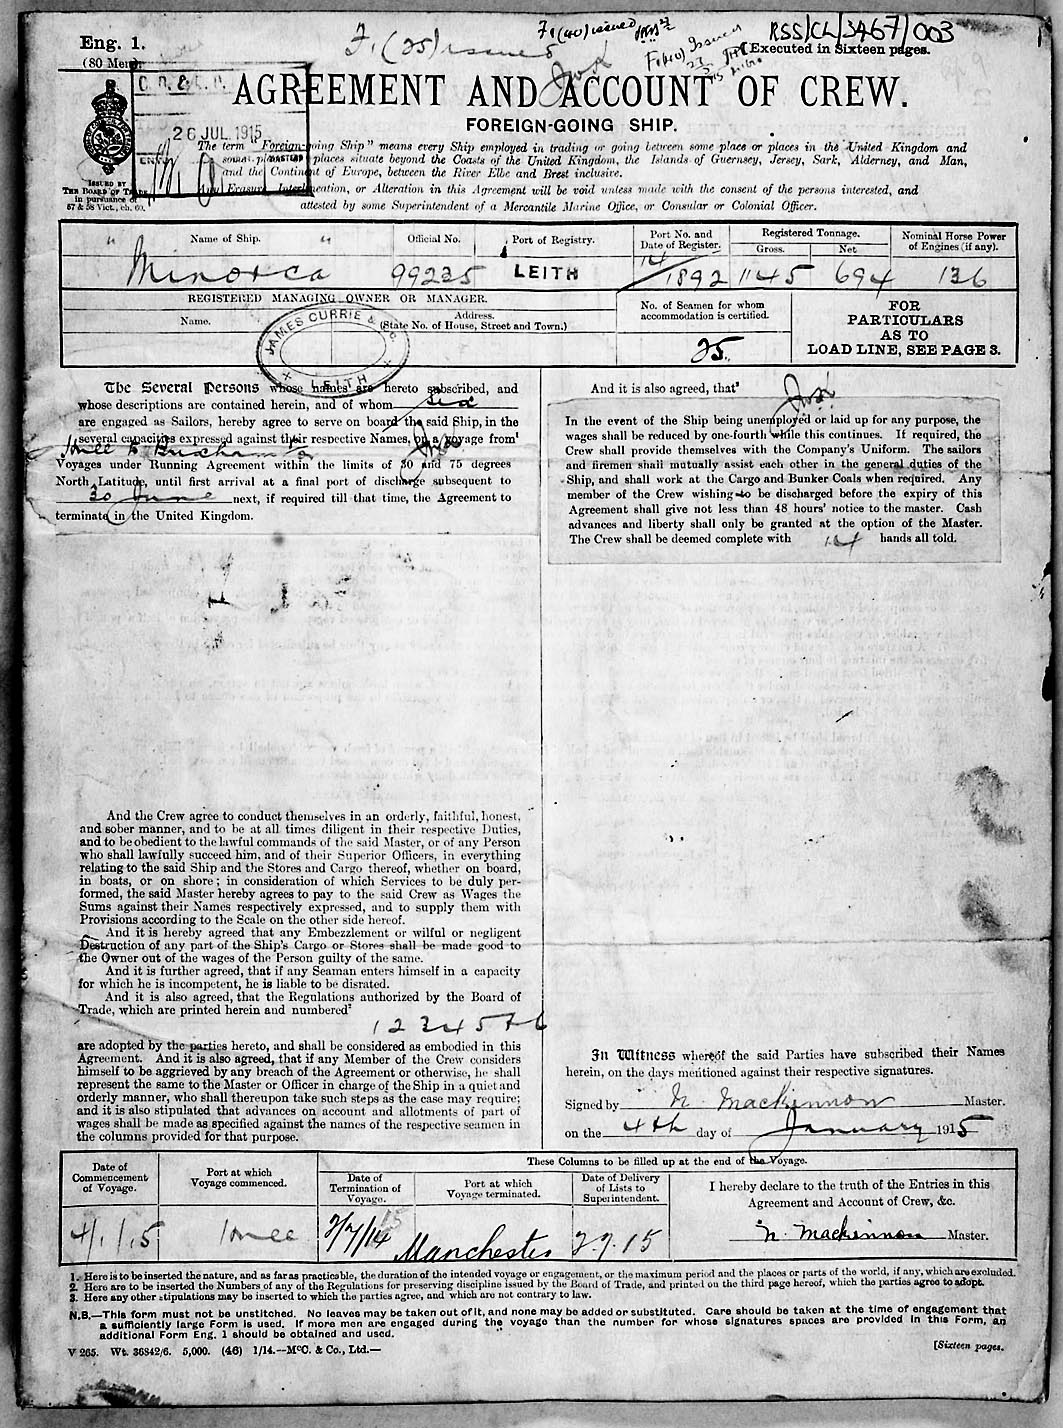 Eng. 1.
(80 Men)
F, (25) issued
F, (40) issued
RSS/CL/3467/003
[Executed in Sixteen pages.
26 JUL. 1915
AGREEMENT AND ACCOUNT OF CREW.
FOREIGN-GOING SHIP.
ISSUED BY
THE BOARD OF TRADE
in pursuance of
57 & 58 Vict., ch. 60.
The term "Foreign-going Ship" means every Ship employed in trading or going between some place or places in the United Kingdom and
some place or places situate beyond the Coasts of the United Kingdom, the Islands of Guernsey, Jersey, Sark, Alderney, and Man,
and the Continent of Europe, between the River Elbe and Brest inclusive.
Any Erasure, Interlineation, or Alteration in this Agreement will be void unless made with the consent of the persons interested, and
attested by some Superintendent of a Mercantile Marine Office, or Consular or Colonial Officer.
Name of Ship. Official No. Port of Registry. Port No. and Date of Register. Registered Tonnage. Gross. Net Nominal Horse Power of Engines (if any).
"Minorca" 99235 LEITH 14/1892 1145 694 136
REGISTERED MANAGING OWNER OR MANAGER.
Name. Address. (State No. of House, Street and Town.)
No. of Seamen for whom accommodation is certified.
25.
FOR
PARTICULARS
AS TO
LOAD LINE, SEE PAGE 3.
JAMES CURRIE & Co.
LEITH
The Several Persons whose names are hereto subscribed, and
whose descriptions are contained herein, and of whom six
are engaged as Sailors, hereby agree to serve on board the said Ship, in the
several capacities expressed against their respective Names, on a voyage from¹
Voyages under Running Agreement within the limits of 30 and 75 degrees
North Latitude, until first arrival at a final port of discharge subsequent to
30 June next, if required till that time, the Agreement to
terminate in the United Kingdom.
And the Crew agree to conduct themselves in an orderly, faithful, honest,
and sober manner, and to be at all times diligent in their respective Duties,
and to be obedient to the lawful commands of the said Master, or of any Person
who shall lawfully succeed him, and of their Superior Officers, in everything
relating to the said Ship and the Stores and Cargo thereof, whether on board,
in boats, or on shore; in consideration of which Services to be duly per-
formed, the said Master hereby agrees to pay to the said Crew as Wages the
Sums against their Names respectively expressed, and to supply them with
Provisions according to the Scale on the other side hereof.
And it is hereby agreed that any Embezzlement or wilful or negligent
Destruction of any part of the Ship's Cargo or Stores shall be made good to
the Owner out of the wages of the Person guilty of the same.
And it is further agreed, that if any Seaman enters himself in a capacity
for which he is incompetent, he is liable to be disrated.
And it is also agreed, that the Regulations authorized by the Board of
Trade, which are printed herein and numbered²
1 2 3 4 5 + 6
are adopted by the parties hereto, and shall be considered as embodied in this
Agreement. And it is also agreed, that if any Member of the Crew considers
himself to be aggrieved by any breach of the Agreement or otherwise, he shall
represent the same to the Master or Officer in charge of the Ship in a quiet and
orderly manner, who shall thereupon take such steps as the case may require;
and it is also stipulated that advances on account and allotments of part of
wages shall be made as specified against the names of the respective seamen in
the columns provided for that purpose.
And it is also agreed, that³
In the event of the Ship being unemployed or laid up for any purpose, the
wages shall be reduced by one-fourth while this continues. If required, the
Crew shall provide themselves with the Company's Uniform. The sailors
and firemen shall mutually assist each other in the general duties of the
Ship, and shall work at the Cargo and Bunker Coals when required. Any
member of the Crew wishing to be discharged before the expiry of this
Agreement shall give not less than 48 hours' notice to the master. Cash
advances and liberty shall only be granted at the option of the Master.
The Crew shall be deemed complete with 14 hands all told.
In Witness whereof the said Parties have subscribed their Names
herein, on the days mentioned against their respective signatures.
Signed by N. Mackinnon Master.
on the 4th day of January 1915
Date of Commencement of Voyage. Port at which Voyage commenced. These Columns to be filled up at the end of the Voyage.
Date of Termination of Voyage. Port at which Voyage terminated. Date of Delivery of Lists to Superintendent.
4/1/15 Manchester 2.7.15
I hereby declare to the truth of the Entries in this
Agreement and Account of Crew, &c.
N. Mackinnon Master.
1. Here is to be inserted the nature, and as far as practicable, the duration of the intended voyage or engagement, or the maximum period and the places or parts of the world, if any, which are excluded.
2. Here are to be inserted the Numbers of any of the Regulations for preserving discipline issued by the Board of Trade, and printed on the third page hereof, which the parties agree to adopt.
3. Here any other stipulations may be inserted to which the parties agree, and which are not contrary to law.
N.B.—This form must not be unstitched. No leaves may be taken out of it, and none may be added or substituted. Care should be taken at the time of engagement that
a sufficiently large Form is used. If more men are engaged during the voyage than the number for whose signatures spaces are provided in this Form, an
additional Form Eng. 1 should be obtained and used.
V 265. Wt. 36842/6. 5,000. (46) 1/14.—McC. & Co., Ltd.—
[Sixteen pages.